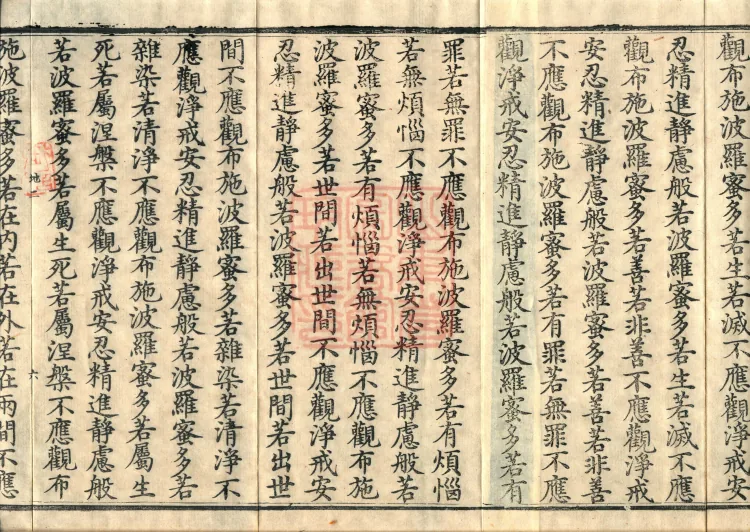 觀布施波羅蜜多若生若滅不應觀淨戒安
忍精進靜慮般若波羅蜜多若生若滅不應
觀布施波羅蜜多若善若非善不應觀淨戒
安忍精進靜慮般若波羅蜜多若善若非善
不應觀布施波羅蜜多若有罪若無罪不應
觀淨戒安忍精進靜慮般若波羅蜜多若有
罪若無罪不應觀布施波羅蜜多若有煩惱
若無煩惱不應觀淨戒安忍精進靜慮般若
波羅蜜多若有煩惱若無煩惱不應觀布施
波羅蜜多若世間若出世間不應觀淨戒安
忍精進靜慮般若波羅蜜多若世間若出世
間不應觀布施波羅蜜多若雜染若清淨不
應觀淨戒安忍精進靜慮般若波羅蜜多若
雜染若清淨不應觀布施波羅蜜多若屬生
死若屬涅槃不應觀淨戒安忍精進靜慮般
若波羅蜜多若屬生死若屬涅槃不應觀布
地一 六
施波羅蜜多若在內若在外若在兩間不應